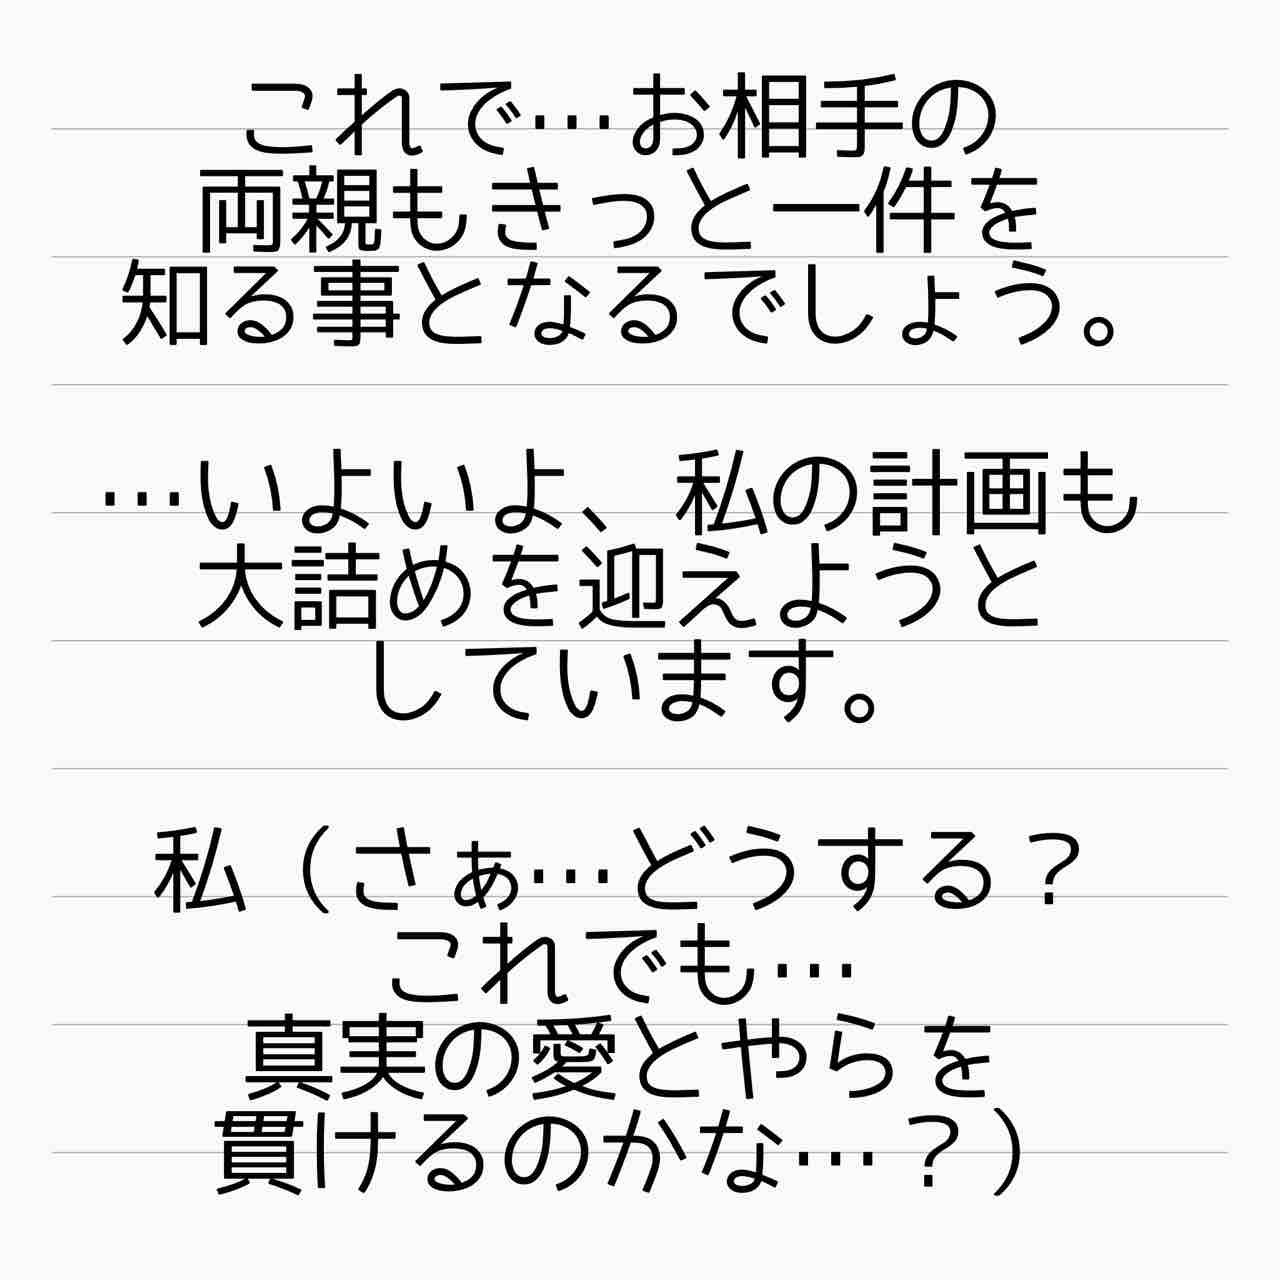 これで…お相手の
両親もきっと一件を
知る事となるでしょう。
…いよいよ、私の計画も
大詰めを迎えようと
しています。
私（さぁ…どうする？
これでも…
真実の愛とやらを
貫けるのかな…？）